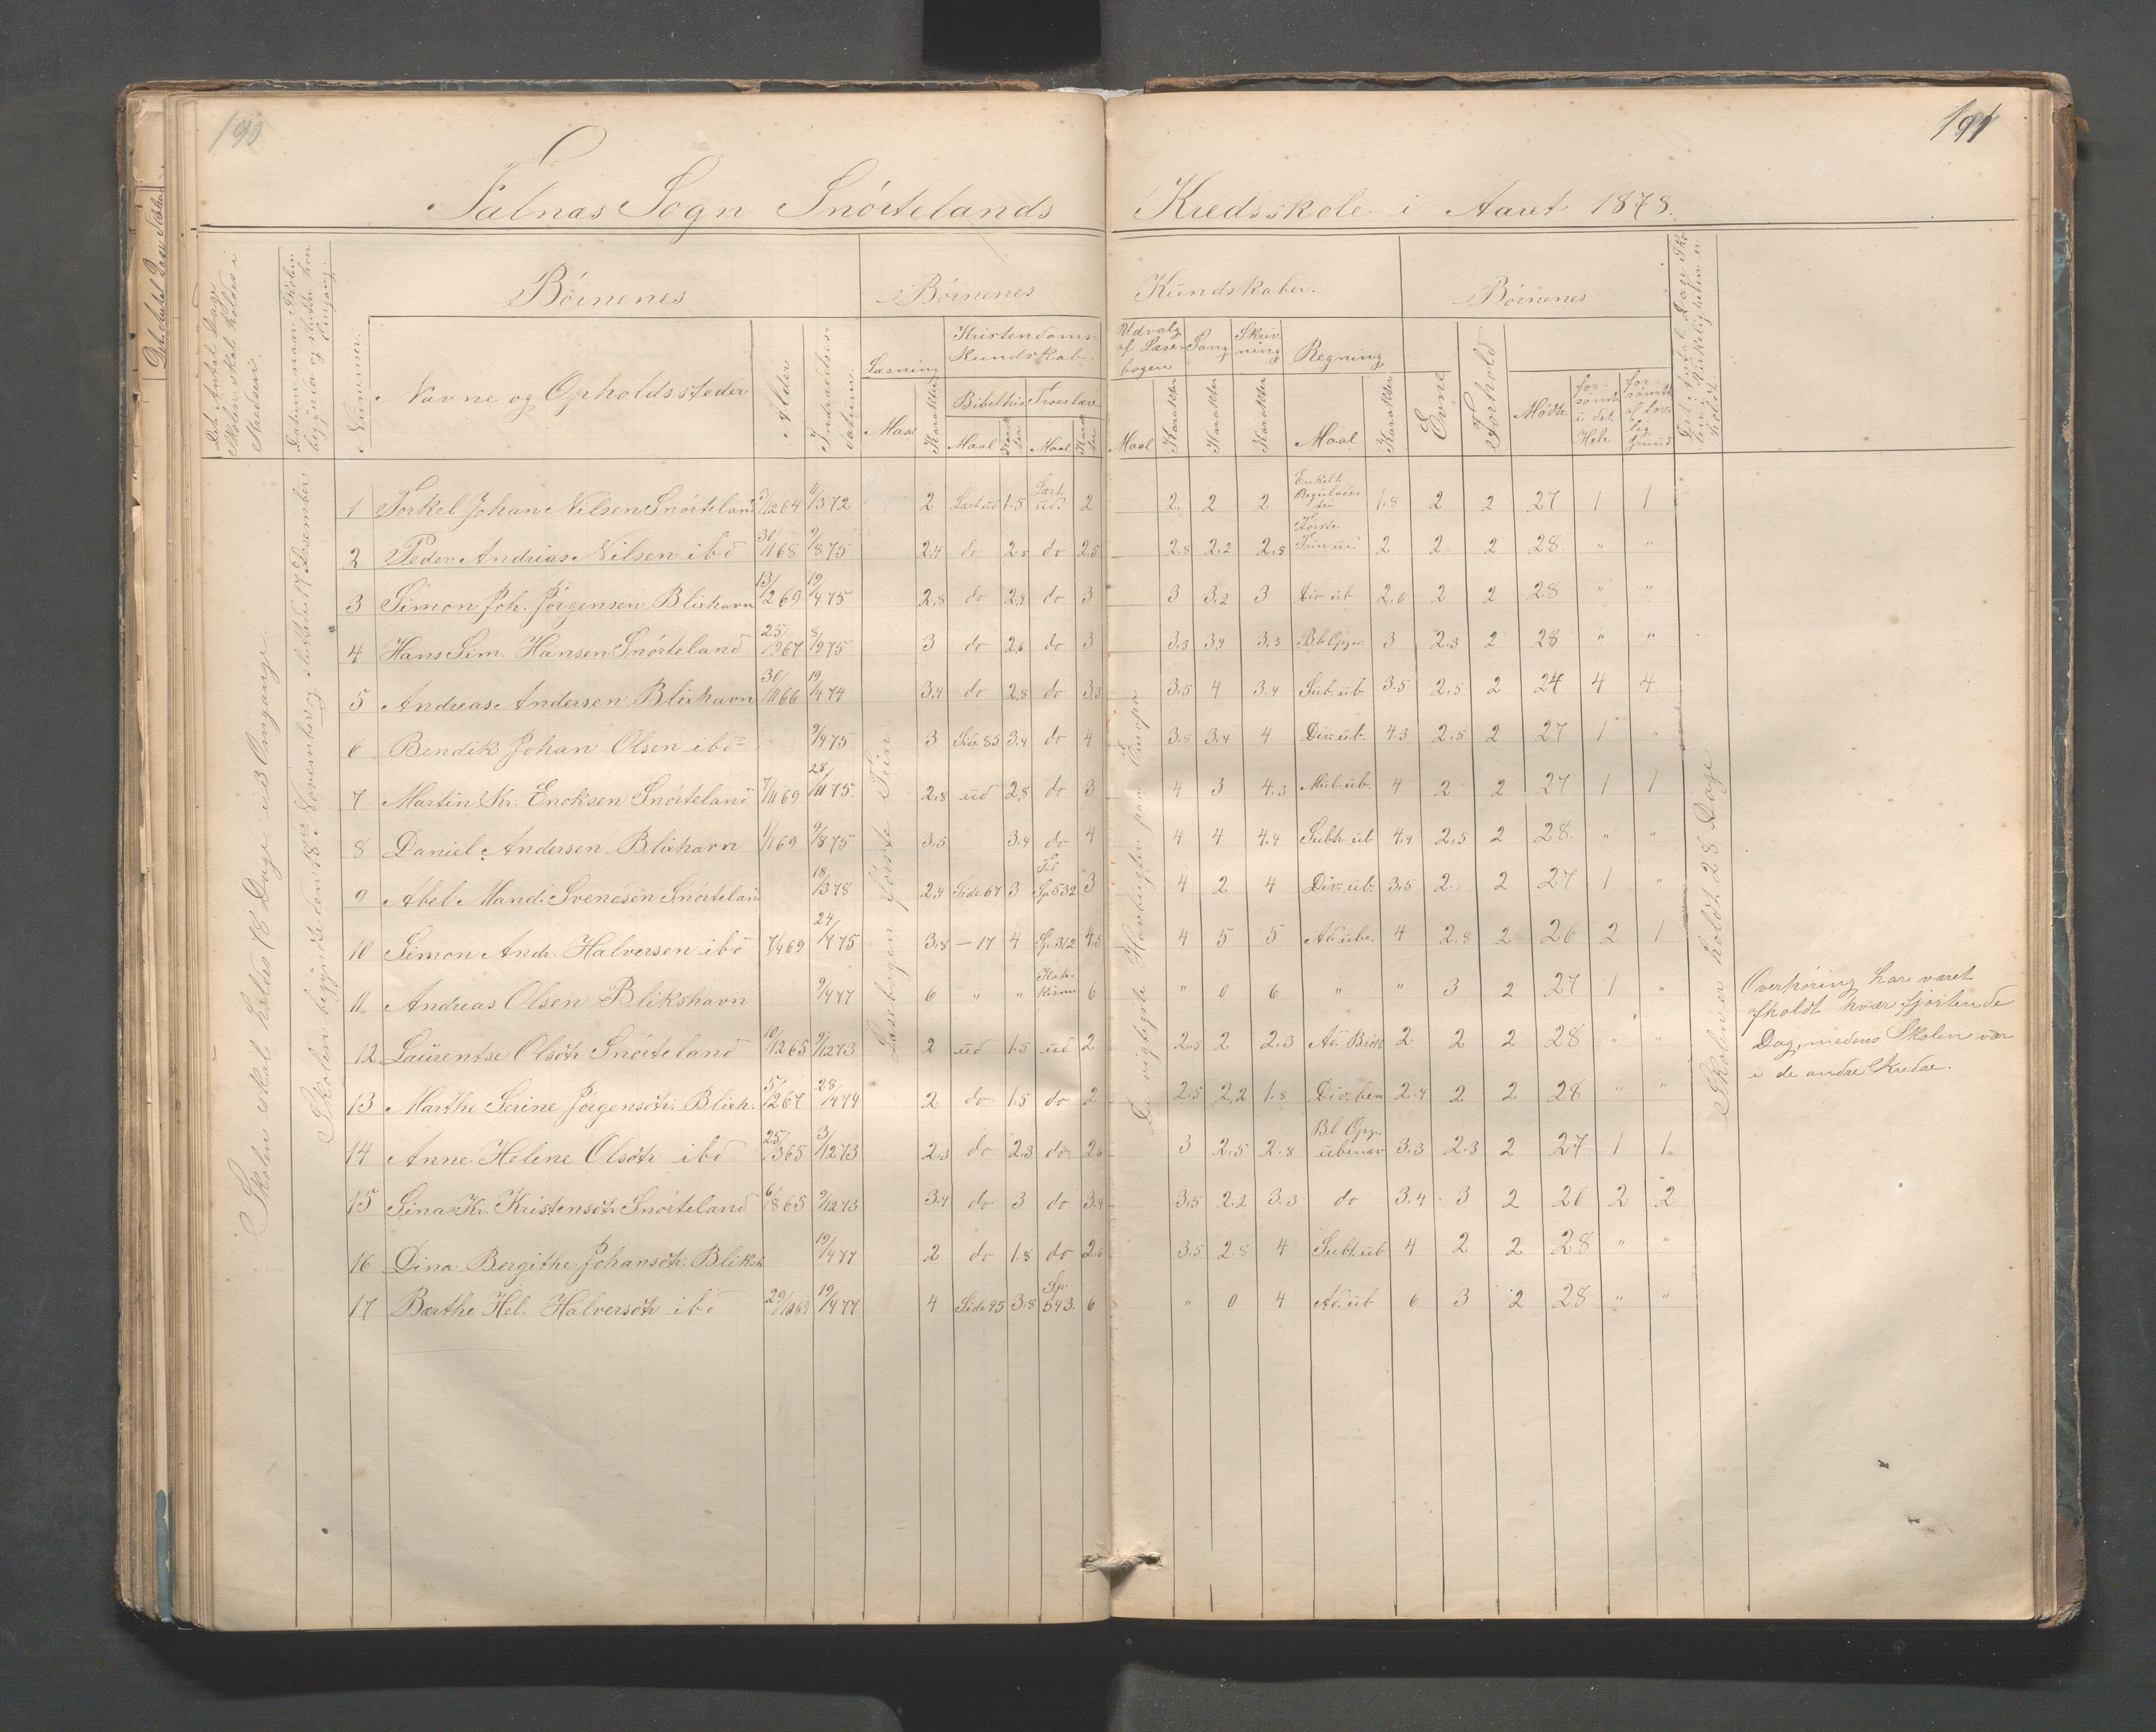 190
191
Falnæs Sogn Snørtelands Kredsskole i Aaret 1878.
Det Antal Dage Skolen skal holdes i Kredsen.
Datum naar Skolen begynder og slutter hver Omgang.
Nummer.
Børnenes
Navne og Opholdssteder
Alder
Indtrædelses datum.
Børnenes Kundskaber.
Læsning
Maal
Karakter
Kristendoms-kundskab.
Bibelhis
Troeslære
Maal
Karakter
Maal
Karakter
Udvalg af Læse-bogen
Maal
Karakter
Sang
Karakter
Skriv-ning
Karakter
Regning
Maal
Karakter
Børnenes
Evne
Forhold
Mødte
for-sømte i det Hele
for-sømte af lov-lig Grund
Det Antal Dage Sko-len i Virkeligheden er holdt.
Skolen skal holdes 78 Dage i 3 Omgange.
Skolen begyndte den 18de November og sluttede 17 December
Læsebogen første Trin
De vigtigste Havbugter paa Europa
Skolen er holdt 28 Dage
1 Torkel Johan Nilsen Snørteland 3/12 64 11/3 72 2 Lært ud 1.5 Lært ud. 2 2. 2 2 Enkelt Reguladetri 1.8 2 2 27 1 1
2 Peder Andreas Nilsen ibd 30/1 68 9/8 75 2,4 do 2.5 do 2.5 2.8 2.2 2.8 Første Trin ud. 2 2 2 28 " "
3 Simon Joh. Jørgensen Blixhavn 13/2 69 19/4 75 2,8 do 2,4 do 3 3 3,2 3 Div ub 2.6 2 2 28 " "
4 Hans Sim. Hansen Snørteland 25/9 67 8/9 75 3 do 2,6 do 3 3.3 3,4 3.3 Bl. Opgr. 3 2.3 2 28 " "
5 Andreas Andersen Blixhavn 30/11 66 19/4 74 3,4 do 2,8 do 3,3 3.5 4 3.4 Sub. ub. 3.5 2.5 2 24 4 4
6 Bendik Johan Olsen ibd 9/4 75 3 Side 85 3,4 do 4 3.5 3.4 4 Div. ub. 4.3 2.5 2 27 1 "
7 Martin Kr. Enoksen Snørteland 7/11 69 28/11 75. 2,8 ud 2,8 do 3 4 3 4.3 Mul. ub. 4 2 2 27 1 1
8 Daniel Andersen Blixhavn 1/1 69 9/8 75 3,5 3,4 do 4 4 4 4.4 Subtr. ub 4,4 2,5 2 28. " "
9 Abel Mand. Svendsen Snørteland 18/3 78 2,4 Side 67 3 Til Sp 532 3 4 2 4 Div. ub. 3.5 2. 2 27 1 "
10 Simon Andr. Halversen ibd 7/4 69 24/4 75 3,8 — 17 4 Sp. 312 4,5 4 5 5 Ad. ube. 4 2.8 2 26 2 1
11 Andreas Olsen Blikshavn 9/4 77 6 " " Kate-kisme 6 " 0 6 " " 3 2 27 1 "
12 Laurentse Olsdtr Snørteland 10/12 65 9/12 73 2 ud 1.5 ud 2 2.5 2 2.3 Ad. Brøk 2 2 2 28 " "
13 Marthe Serine Jørgensdtr. Blixh. 5/12 67 28/4 74 2 do 1.5 do 2 2.5 2,2 1.8 Div. ben 2.4 2 2 28 " "
14 Anne Helene Olsdtr ibd 25/3 65 3/12 73 2,3 do 2,3 do 2,6 3 2.5 2.8 Bl. Opgr. ubenævn 3.3 2.3 2 27 1 1.
15 Sina Kr. Kristensdtr Snørteland 6/8 65 9/12 73 3,4 do 3 do 3,4 3,5 2.2 3.3 do 3.4 3 2 26 2 2
16 Dina Bergithe Johansdtr. Bliksh 19/4 77 2 do 1.8 do 2.6 3,5 2.8 4 Subt. ub 4 2 2 28 " "
17 Bærthe Hel. Halversdtr ibd 29/10 69 19/4 77 4 Side 45 3,8 Sp 543. 6 " 0 4 Ad. ub 6 3 2 28 " "
Overhøring har været
afholdt hver fjortende
Dag, medens Skolen var
i de andre Kredse.